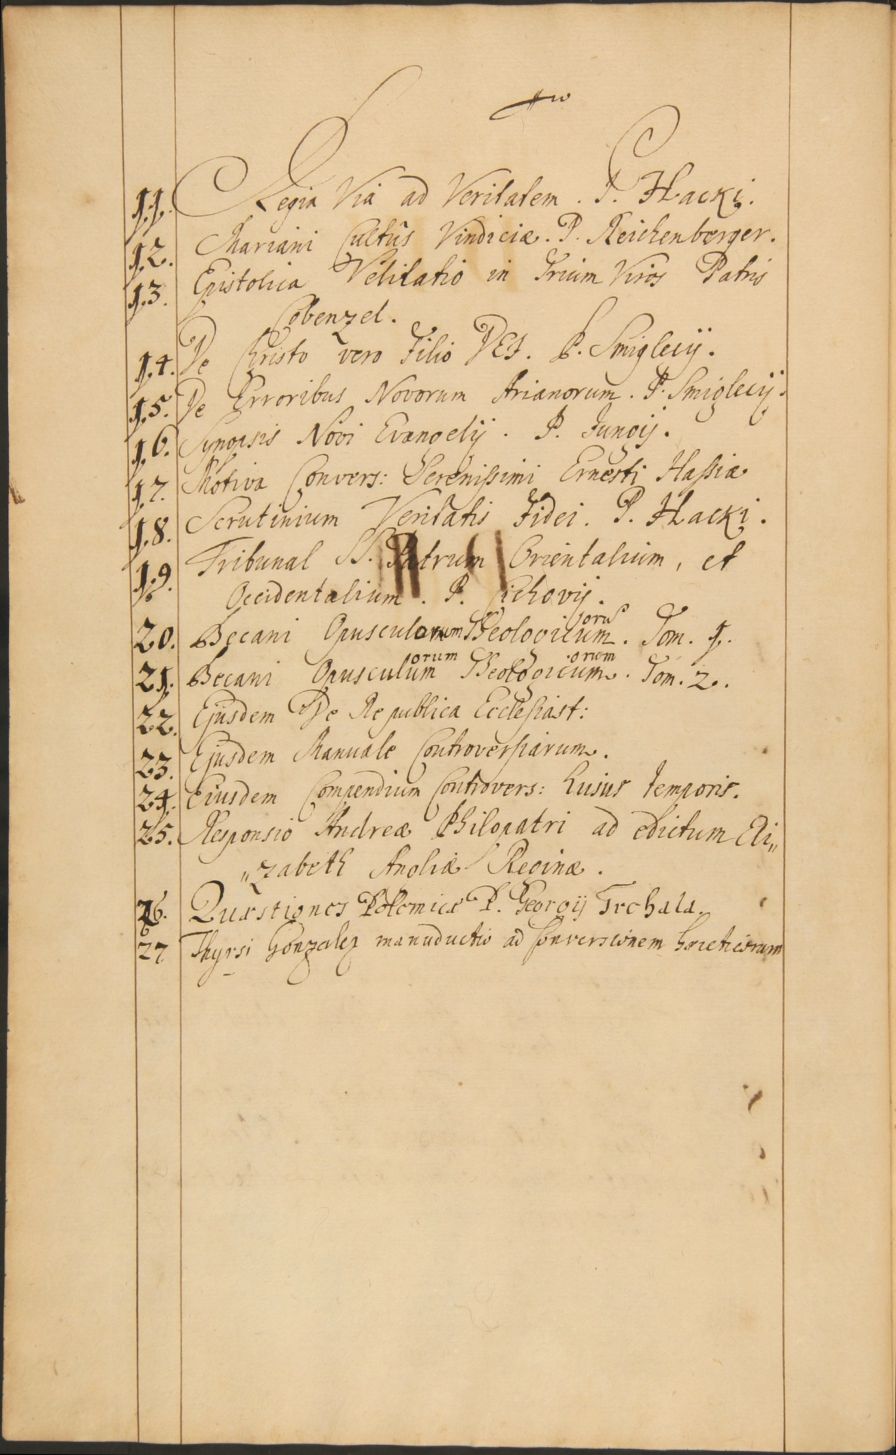 11. Regia Via ad Veritatem. P. Hacki.
12. Mariani Cultûs Vindiciæ. P. Reichenberger.
13. Epistolica Velitatio in Trium Viros Patris
Cobenzel.
14. De Christo vero Filio DEI. P. Smiglecij.
15. De Erroribus Novorum Arianorum. P. Smiglecij.
16. Synopsis Novi Evangelij. P. Jungij.
17. Motiva Convers: Serenissimi Ernesti Hassiæ
18. Scrutinium Veritatis Fidei. P. Hacki.
19. Tribunal SS. Patrum Orientalium, et
Occidentalium. P. Cichovij.
20. Becani Opusculorum Theologicum orum. Tom. 1.
21. Becani Opusculum orum Theologicum orum. Tom. 2.
22. Ejusdem De Republica Ecclesiast:
23. Ejusdem Manuale Controversiarum.
24. Eiusdem Compendium Controvers: huius temporis.
25. Responsio Andreæ Philopatri ad edictum Eli„
„zabeth Angliæ Reginæ.
26. Quæstiones Polemicæ P. Georgij Trchala.
27 Thyrsi Gonzalez manuductio ad Conversionem hæreticorum